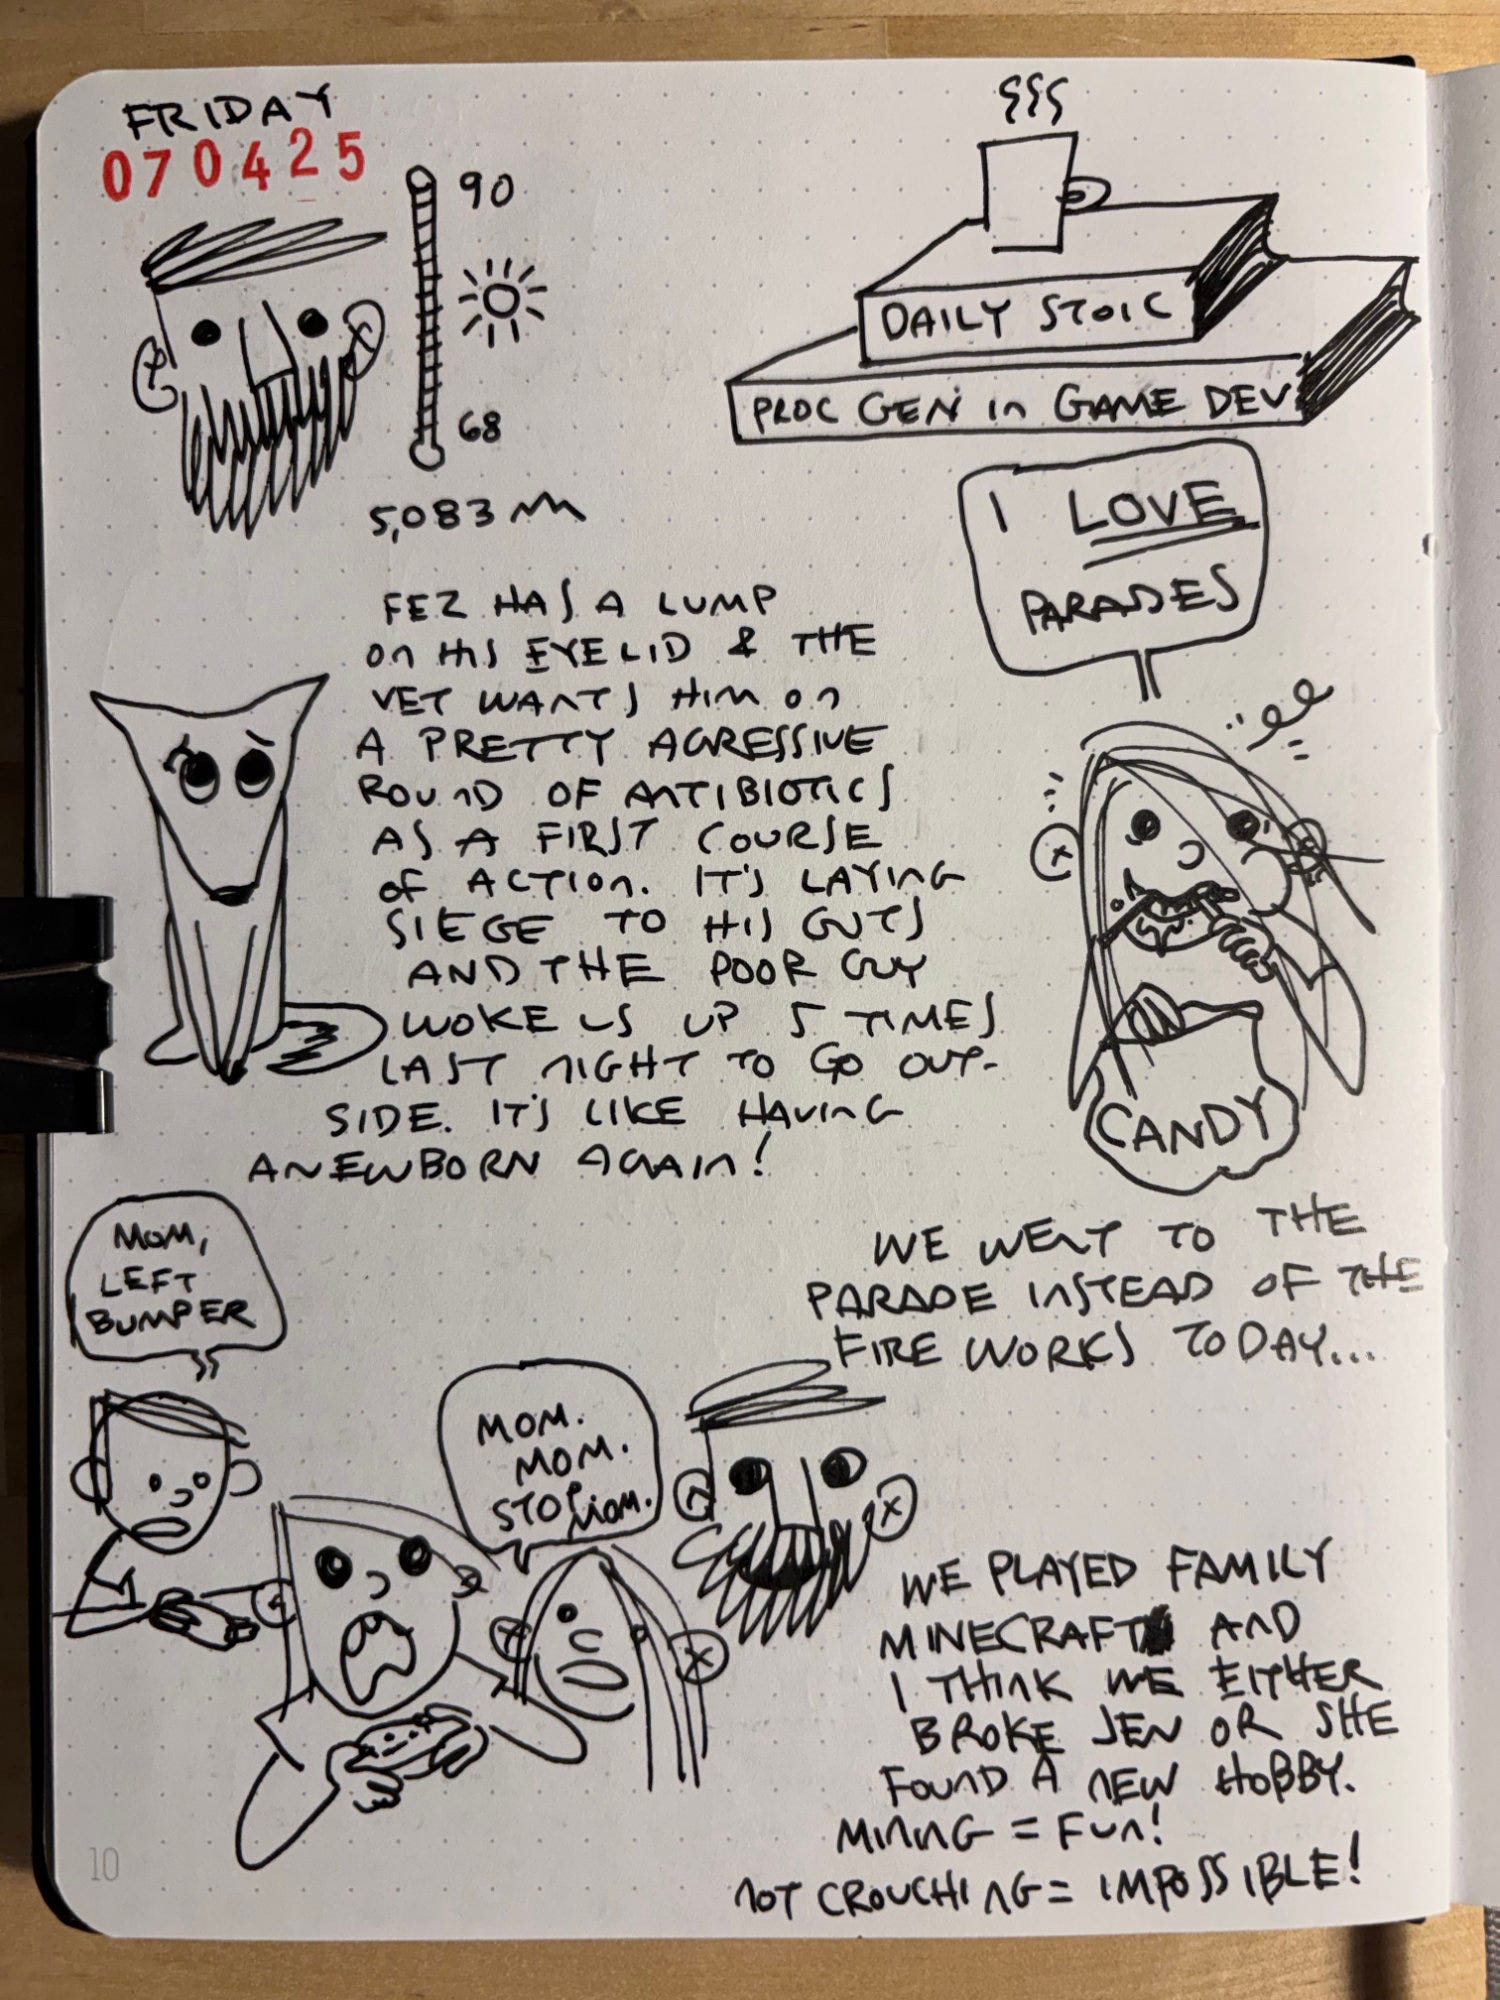 FRIDAY
070425
90
68
5,083
DAILY STOIC
PROC GEN in GAME DEV
I LOVE
PARADES
FEZ HAS A LUMP
on HIS EYELID & THE
VET WANTS HIM on
A PRETTY AGRESSIVE
ROUND OF ANTIBIOTICS
AS A FIRST COURSE
of ACTION. IT'S LAYING
SIEGE TO HIS GUTS
AND THE POOR GUY
WOKE US UP 5 TIMES
LAST NIGHT TO GO OUT-
SIDE. IT'S LIKE HAVING
A NEWBORN AGAIN!
CANDY
WE WENT TO THE
PARADE INSTEAD OF THE
FIRE WORKS TODAY...
MOM,
LEFT
BUMPER
MOM.
MOM.
STOP MOM.
WE PLAYED FAMILY
MINECRAFT AND
I THINK WE EITHER
BROKE JEN OR SHE
FOUND A NEW HOBBY.
MINING = FUN!
NOT CROUCHING = IMPOSSIBLE!
10